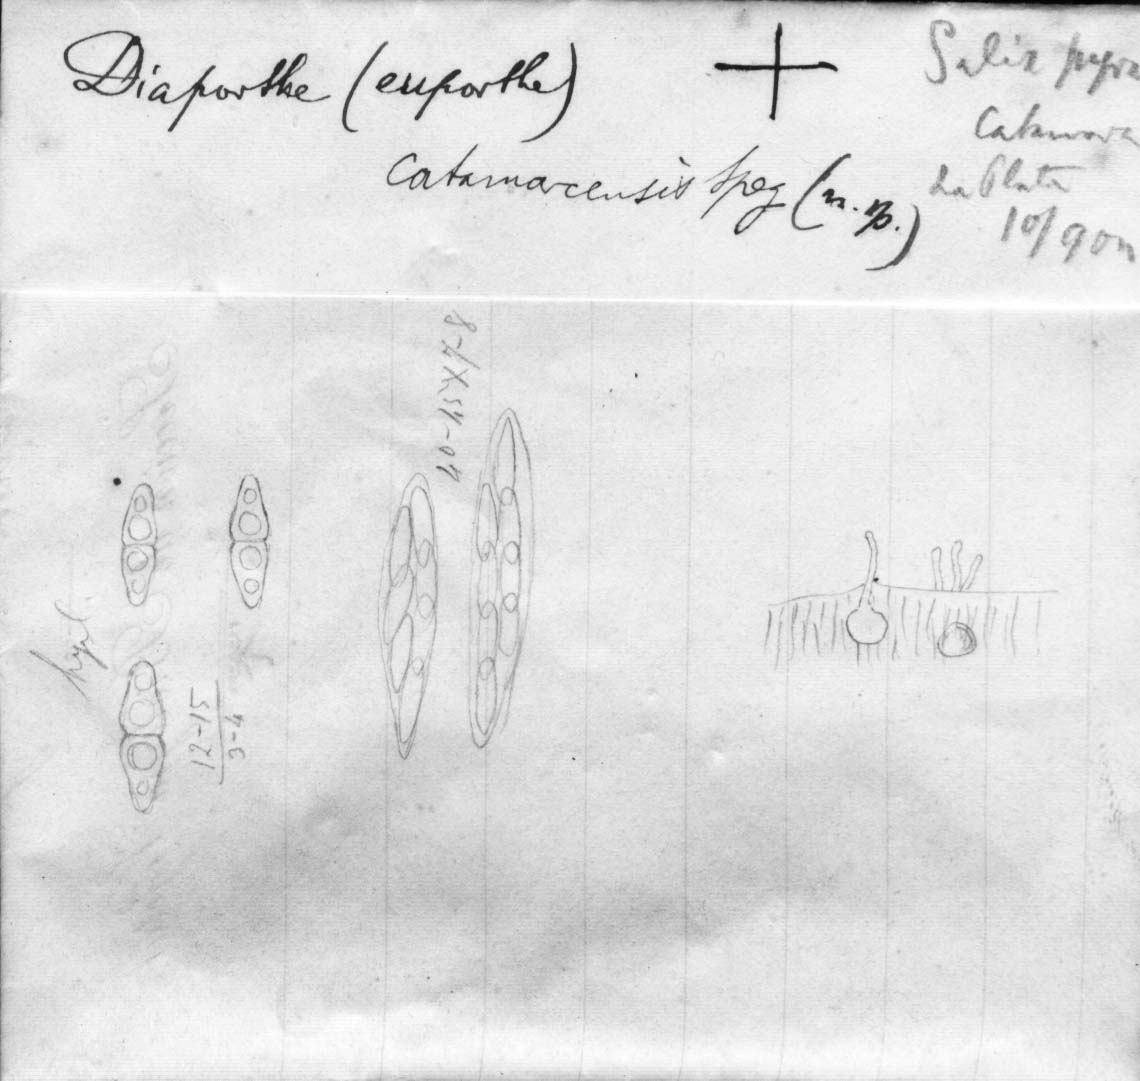 Diaporthe (euporthe)
catamarcensis Speg (n. sp.)
Salix
Catamarca
La Plata
10/90
40-45X7-8
hyal.
12-15
3-4